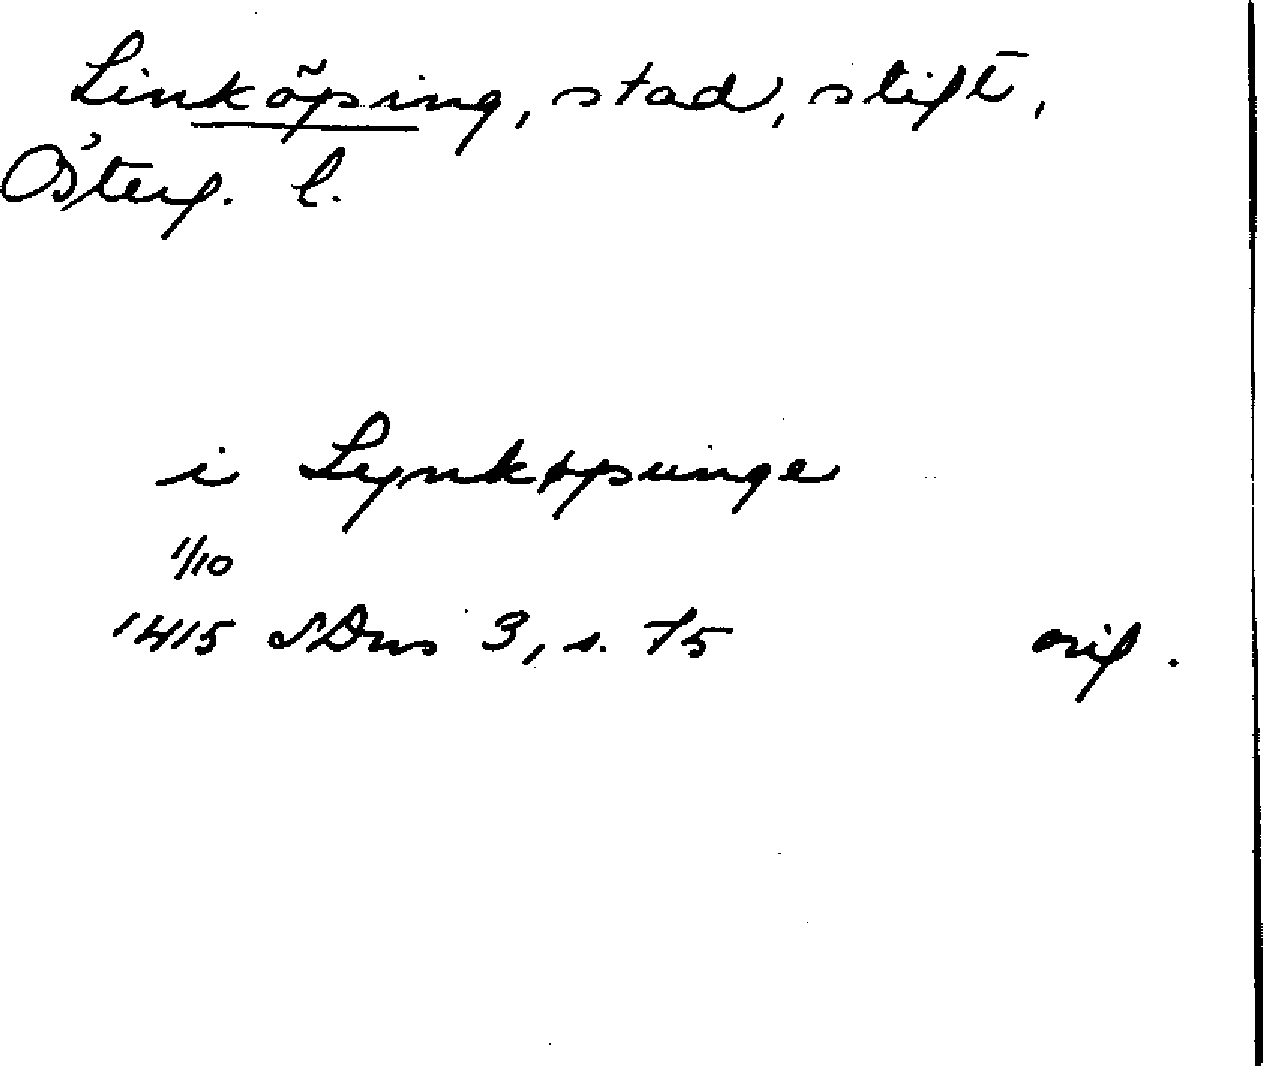 Linköping, stad, stift,
Österg. l.
i Lynkøpunge
1/10
1415 SDns 3, s. 75 orig.